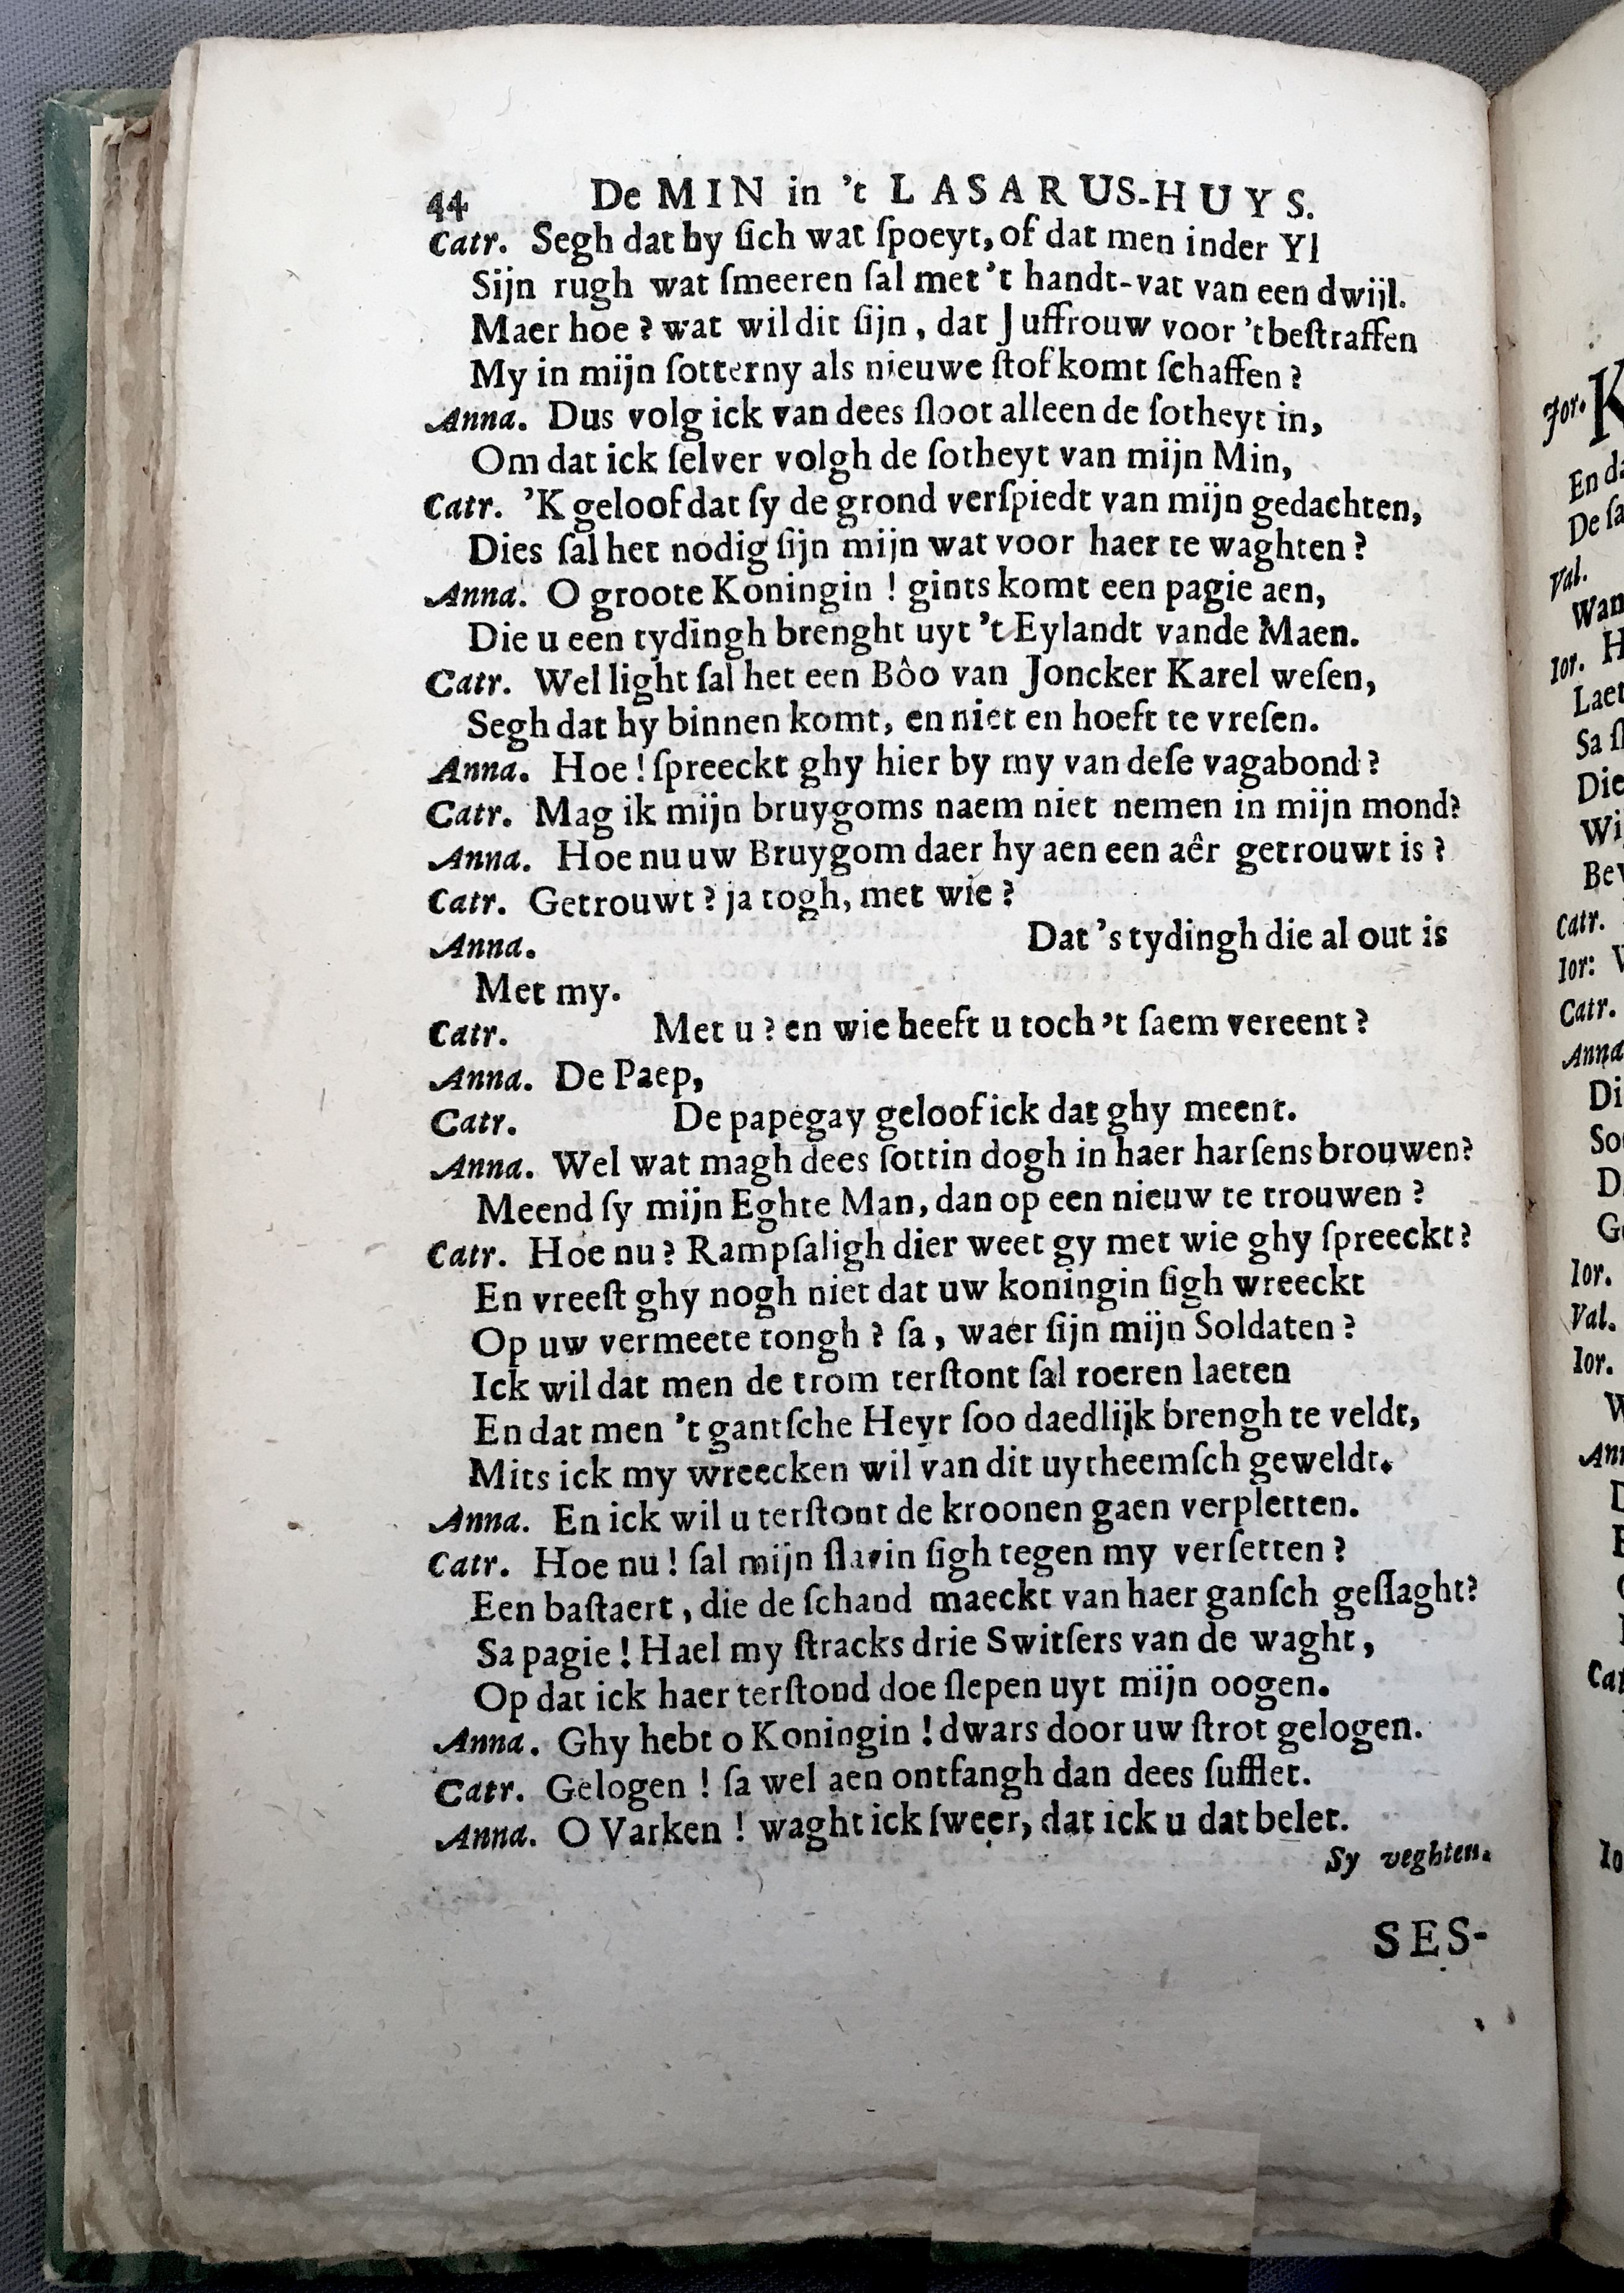 44 De MIN in 't LASARUS-HUYS.
Catr. Segh dat hy ſich wat ſpoeyt, of dat men inder Yl
Sijn rugh wat ſmeeren ſal met 't handt-vat van een dwijl.
Maer hoe? wat wil dit ſijn, dat Juffrouw voor 't beſtraffen
My in mijn ſotterny als nieuwe ſtof komt ſchaffen?
Anna. Dus volg ick van dees ſloot alleen de ſotheyt in,
Om dat ick ſelver volgh de ſotheyt van mijn Min,
Catr. 'K geloof dat ſy de grond verſpiedt van mijn gedachten,
Dies ſal het nodig ſijn mijn wat voor haer te waghten?
Anna. O groote Koningin! gints komt een pagie aen,
Die u een tydingh brenght uyt 't Eylandt vande Maen.
Catr. Wel light ſal het een Bôo van Joncker Karel weſen,
Segh dat hy binnen komt, en niet en hoeft te vreſen.
Anna. Hoe! ſpreeckt ghy hier by my van deſe vagabond?
Catr. Mag ik mijn bruygoms naem niet nemen in mijn mond?
Anna. Hoe nu uw Bruygom daer hy aen een aêr getrouwt is?
Catr. Getrouwt? ja togh, met wie?
Anna. Dat 's tydingh die al out is
Met my.
Catr. Met u? en wie heeft u toch 't ſaem vereent?
Anna. De Paep,
Catr. De papegay geloof ick dat ghy meent.
Anna. Wel wat magh dees ſottin dogh in haer harſens brouwen?
Meend ſy mijn Eghte Man, dan op een nieuw te trouwen?
Catr. Hoe nu? Rampſaligh dier weet gy met wie ghy ſpreeckt?
En vreeſt ghy nogh niet dat uw koningin ſigh wreeckt
Op uw vermeete tongh? ſa, waer ſijn mijn Soldaten?
Ick wil dat men de trom terſtont ſal roeren laeten
En dat men 't gantſche Heyr ſoo daedlijk brengh te veldt,
Mits ick my wreecken wil van dit uytheemſch geweldt.
Anna. En ick wil u terſtont de kroonen gaen verpletten.
Catr. Hoe nu! ſal mijn ſlavin ſigh tegen my verſetten?
Een baſtaert, die de ſchand maeckt van haer ganſch geſlaght?
Sa pagie! Hael my ſtracks drie Switſers van de waght,
Op dat ick haer terſtond doe ſlepen uyt mijn oogen.
Anna. Ghy hebt o Koningin! dwars door uw ſtrot gelogen.
Catr. Gelogen! ſa wel aen ontfangh dan dees ſufflet.
Anna. O Varken! waght ick ſweer, dat ick u dat belet.
Sy veghten.
SES-
Jor. K
En da
De ſa
Val.
Wan
Ior. H
Laet
Sa ſl
Die
Wi
Bev
Catr.
Ior: V
Catr.
Anna
Di
So
D
G
Ior.
Val.
Ior.
W
Ann
D
Cat
Io